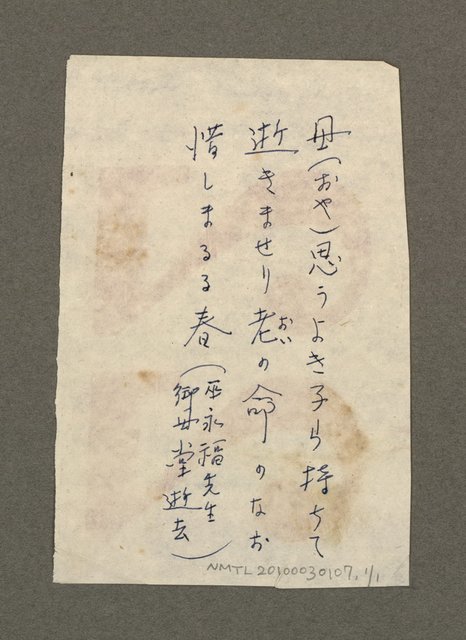 母(おや)思うよき子ら持ちて
逝きませり老の命のなお
おい
惜しまるる春
(巫永福先生
御母堂逝去)
NMTL20100030107, 1/1